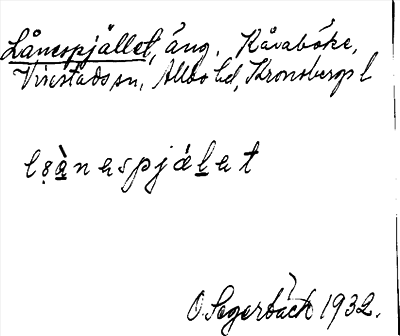 Lånespjället, äng. Råvaböke,
Virestads sn, Allbo hd, Kronobergs l
lsànespjálet
O. Segerbäck 1932.